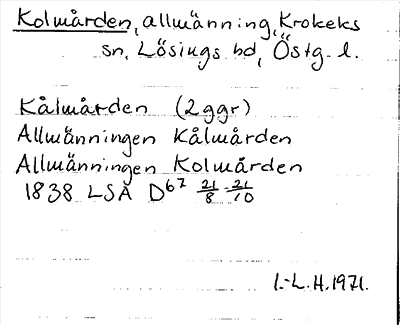 Kolmården, allmänning, Krokeks
sn, Lösings hd, Östg. l.
Kålmården (2 ggr)
Allmänningen Kålmården
Allmänningen Kolmården
1838 LSA D67 21/8-21/10
I.-L.H.1971.